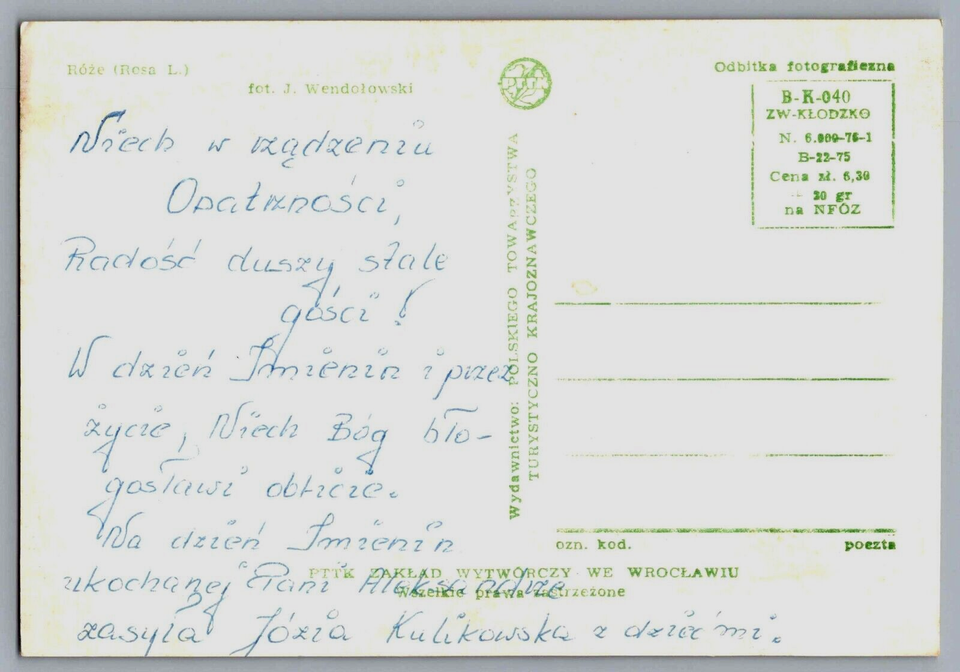 Róże (Rosa L.)
fot. J. Wendołowski
Niech w rządzeniu
Opatrzności,
Radość duszy stale
gości!
W dzień Imienin i przez
życie, Niech Bóg bło-
gosławi obficie.
Na dzień Imienin
ukochanej Pani Aleksandrze
zasyła Józia Kulikowska z dziećmi.
PTTK
Wydawnictwo: POLSKIEGO TOWARZYSTWA
TURYSTYCZNO KRAJOZNAWCZEGO
Odbitka fotograficzna
B-K-040
ZW-KŁODZKO
N. 6.000-76-1
B-22-75
Cena zł. 6,30
+ 20 gr
na NFOZ
ozn. kod.
poczta
PTTK ZAKŁAD WYTWÓRCZY WE WROCŁAWIU
Wszelkie prawa zastrzeżone